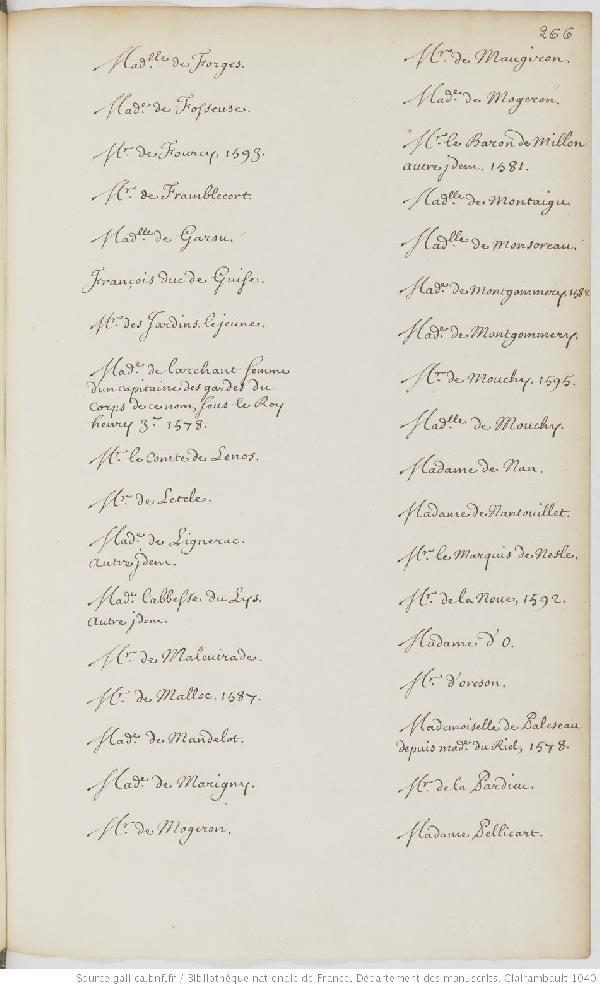 266
Mad.lle de Forges.
Mad.e de Fosseuse.
M.r de Fourcy, 1593.
M.r de Framblecort.
Mad.lle de Garsu.
François duc de Guise.
M.r des Jardins lejeune.
Mad.e de larchant femme
d'un capitaine des gardes du
corps de ce nom, sous le Roy
henry 3.e 1578.
M.r le Comte de Lenos.
M.r de Letele.
Mad.e de Lignerac.
Autre jdem.
Mad.e l'abbesse du Lys.
Autre jdem.
M.r de Malevirade.
M.r de Malloc. 1587.
Mad.e de Mandelot.
Mad.e de Marigny.
M.r de Mogeron.
M.r de Maugiron.
Mad.e de Mogeron.
M.r le Baron de Millon
autre jdem. 1581.
Mad.lle de Montaigu
Mad.lle de Monsoreau.
Mad.e de Montgommery 1582
Mad.e de Montgommery.
M.r de Mouchy. 1595.
Mad.lle de Mouchy.
Madame de Nan.
Madame de Nantouillet.
M.r le Marquis de Nesle.
M.r de la Noue, 1592.
Madame d'O.
M.r d'orcson.
Mademoiselle de Paleseau
depuis mad.e du Riel, 1578.
M.r de la Pardieu.
Madame Pellicart.
Source gallica.bnf.fr / Bibliothèque nationale de France. Département des manuscrits. Clairambault 1040